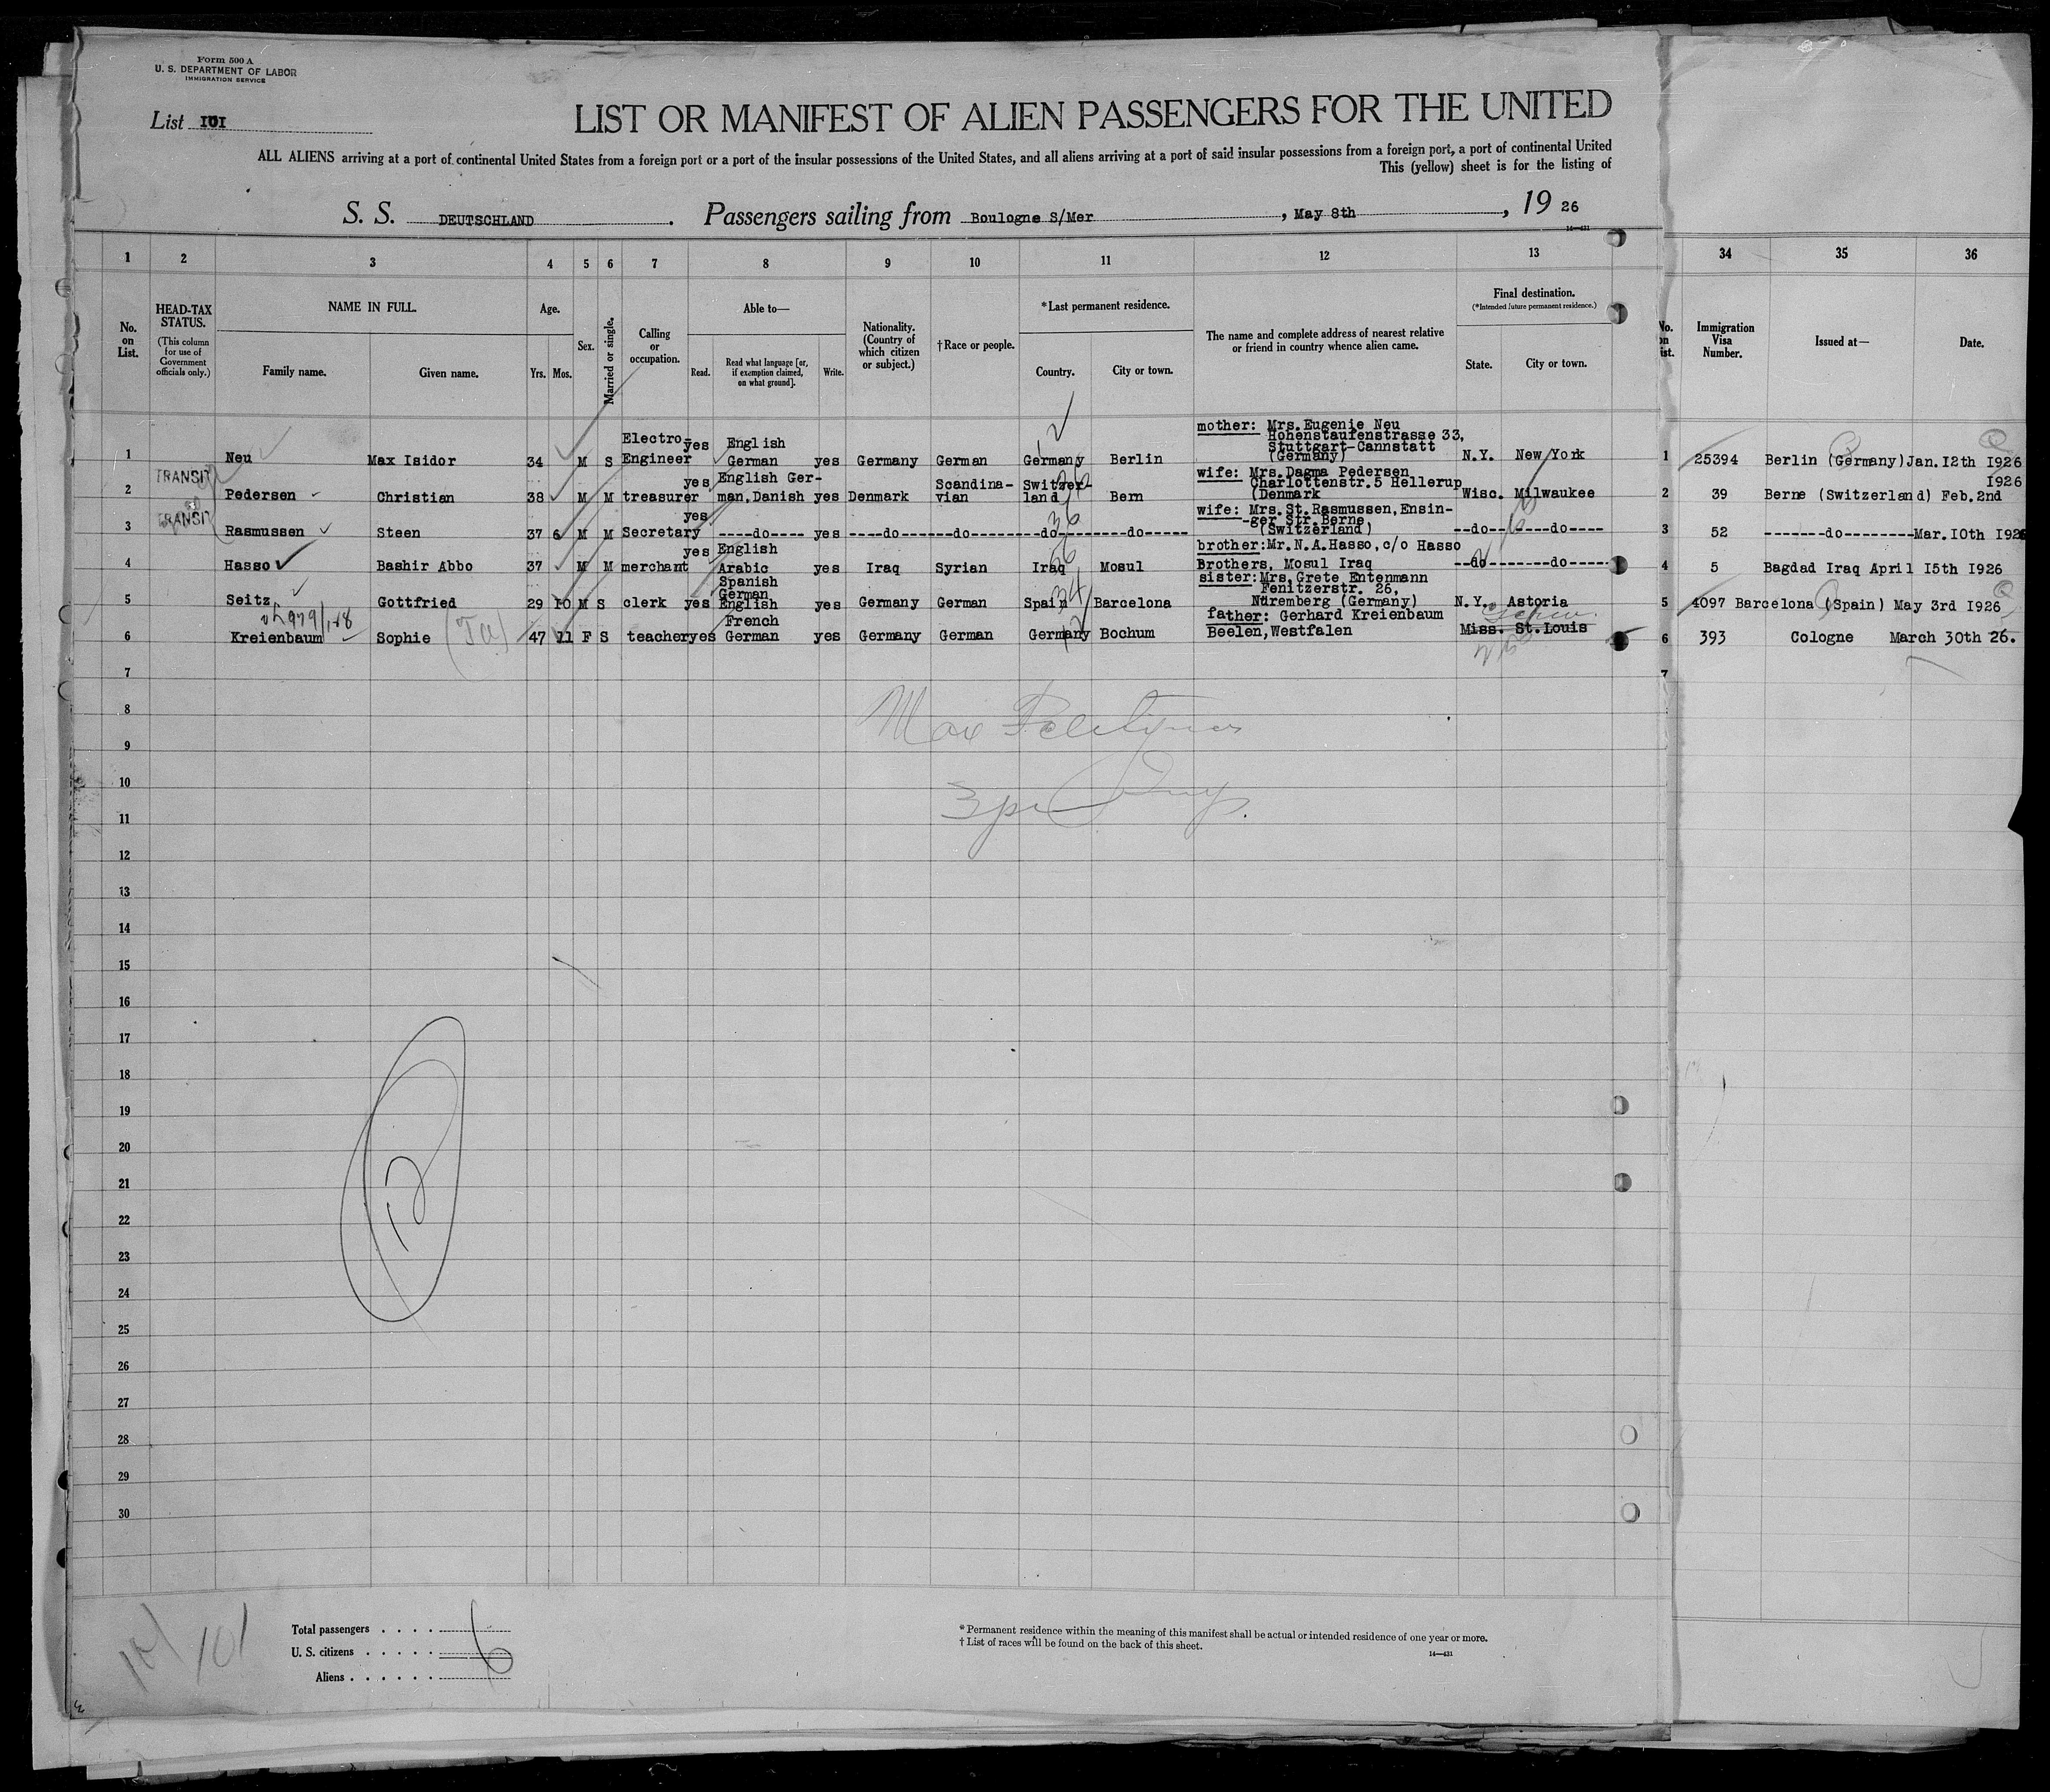 Form 500 A
U. S. DEPARTMENT OF LABOR
IMMIGRATION SERVICE
List 101
LIST OR MANIFEST OF ALIEN PASSENGERS FOR THE UNITED
ALL ALIENS arriving at a port of continental United States from a foreign port or a port of the insular possessions of the United States, and all aliens arriving at a port of said insular possessions from a foreign port, a port of continental United
This (yellow) sheet is for the listing of
S. S. DEUTSCHLAND. Passengers sailing from Boulogne S/Mer, May 8th, 19 26
14—431
1 2 3 4 5 6 7 8 9 10 11 12 13 34 35 36
No. on List.
HEAD-TAX STATUS.
(This column for use of Government officials only.)
NAME IN FULL.
Family name. Given name.
Age.
Yrs. Mos.
Sex.
Married or single.
Calling or occupation.
Able to—
Read. Read what language [or, if exemption claimed, on what ground]. Write.
Nationality. (Country of which citizen or subject.)
†Race or people.
*Last permanent residence.
Country. City or town.
The name and complete address of nearest relative or friend in country whence alien came.
Final destination.
(*Intended future permanent residence.)
State. City or town.
No. on List.
Immigration Visa Number.
Issued at—
Date.
1 Neu Max Isidor 34 M S Electro-Engineer yes English German yes Germany German Germany Berlin mother: Mrs. Eugenie Neu Hohenstaufenstrasse 33, Stuttgart-Cannstatt (Germany) N.Y. New York 1 25394 Berlin (Germany) Jan. 12th 1926
TRANSIT
2 Pedersen Christian 38 M M treasurer yes English German, Danish yes Denmark Scandina-vian Switzer-land Bern wife: Mrs. Dagma Pedersen Charlottenstr. 5 Hellerup (Denmark Wisc. Milwaukee 2 39 Berne (Switzerland) Feb. 2nd 1926
TRANSIT
3 Rasmussen Steen 37 6 M M Secretary yes ----do---- yes ----do-------do---------do---------do------ wife: Mrs. St. Rasmussen, Ensin--ger Str. Berne (Switzerland) --do-------do---- 3 52 -------do-------- Mar. 10th 1926
4 Hasso Bashir Abbo 37 M M merchant yes English Arabic yes Iraq Syrian Iraq Mosul brother: Mr. N.A. Hasso, c/o Hasso Brothers, Mosul Iraq --do---------do----- 4 5 Bagdad Iraq April 15th 1926
5 Seitz Gottfried 29 10 M S clerk yes Spanish German English yes Germany German Spain Barcelona sister: Mrs. Grete Entenmann Fenitzerstr. 26, Nüremberg (Germany) N.Y. Astoria 5 4097 Barcelona (Spain) May 3rd 1926
6 Kreienbaum Sophie 47 11 F S teacher yes French German yes Germany German Germany Bochum father: Gerhard Kreienbaum Beelen, Westfalen Miss. St. Louis 6 393 Cologne March 30th 26.
7 7
8
9
10
11
12
13
14
15
16
17
18
19
20
21
22
23
24
25
26
27
28
29
30
12
101 101
Total passengers . . . .
U. S. citizens . . . . .
Aliens . . . . . .
6
* Permanent residence within the meaning of this manifest shall be actual or intended residence of one year or more.
† List of races will be found on the back of this sheet.
14—431